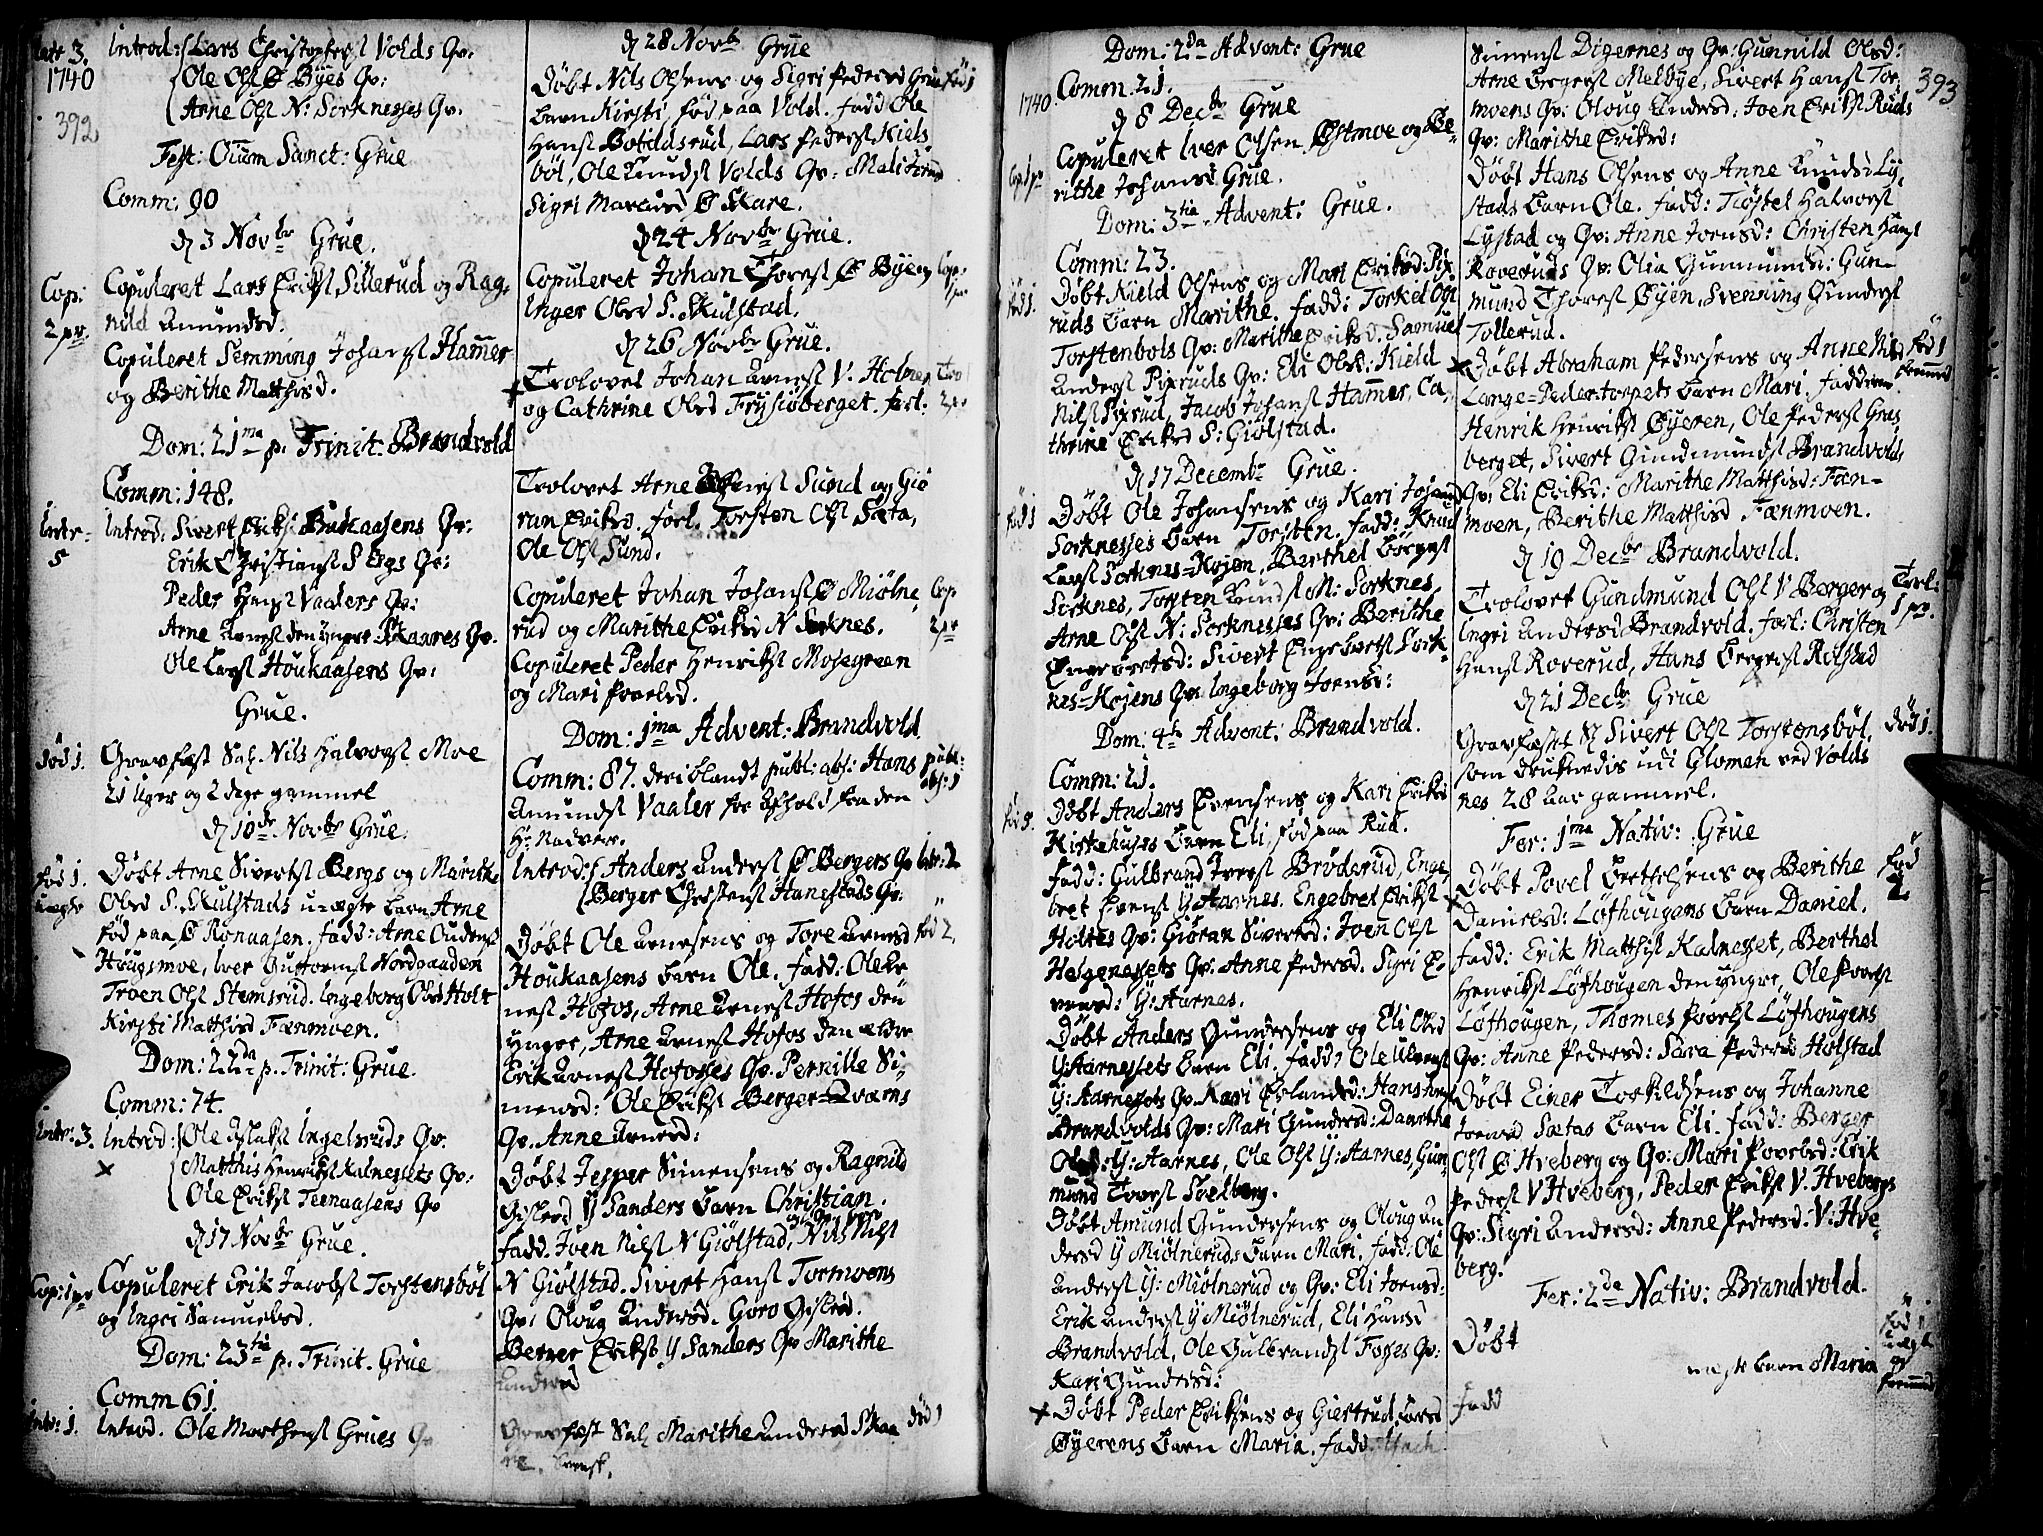 1740
392
Introd: Lars Christophersl Volds Qv:
Ole Olsl Ø Byes Qv:
Arne Olsl N: Sorknesses Qv.
Fest: Oium Sanct: Grue
Comm: 90
d 3 Novbr Grue.
Cop:
2 pr.
Copuleret Lars Eriksl Sillerud og Rag-
nild Amundsd.
Copuleret Semming Johansl Hamer
og Berithe Matthisd.
Dom: 21ma p. Trinit. Brandvold
Comm: 148.
Intr-
5
Introd: Sivert Eriksl Buckaasens Qv:
Erik Christiansl S Bergs Qv:
Peder Hansl Vaalers Qv:
Arne Arnesl den yngre Skaares Qv.
Ole Larsl Houkaasens Qv:
Grue.
død 1.
Gravfæst Sal. Nils Halvorsl Moe
21 Uger og 2 dage gammel
d 10de Novbr Grue.
fød 1.
uægte
Døbt Arne Sivertsl Bergs og Marithe
Olsd S. Skulstads uægte barn Arne
fød paa Ø Rönaasen. fadd: Arne Oudensl
Hougsmoe, Iver Guttormsl Nordgauden
Troen Olsl Stemsrud. Ingeborg Olsd Holt
Kirsti Matthisd Fænmoen.
Dom: 22da p. Trinit: Grue.
Comm: 74.
Intr: 3.
Introd: Ole Aslaksl Ingelsruds Qv.
Matthis Henriksl Kalnessets Qv:
Ole Eriksl Teenaasens Qv
d 17 Novbr Grue.
Cop: 1 pr
Copuleret Erik Jacobsl Torstensböl
og Ingri Samuelsd.
Dom: 23tia p. Trinit. Grue
Comm 61.
Intr: 1.
Introd. Ole Morthensl Grues Qv
d 28 Novb Grue
Døbt Nils Olsens og Sigri Pedersd Grue fød 1
barn Kirsti, fød paa Vold. fadd Ole
Hansl Botildsrud, Lars Pedersl Kiels
böl, Ole Knudsl Volds Qv: Mali
Sigri Marcusd Ø Skare.
d 24 Novbr Grue.
Copuleret Johan Thoresl Ø Byen og
Inger Olsd S. Skulstad.
d 26 Novbr Grue.
Trolovet Johan Arnesl V. Holmen
og Cathrine Olsd Frysioberget. forl:
Trolovet Arne Sund og Giö
ran Eriksd. forl. Torsten Olsl Sæta,
Ole Olsl Sund.
Copuleret Johan Johansl Ø Miölne
rud og Marithe Eriksd N Sorknes.
Cop
2 pr
Copuleret Peder Henriksl Mosegreen
og Mari Povelsd.
Dom: 1ma Advent: Brandvold
Comm: 87. deriblandt publ: abs: Hans
Amundsl Vaaler for Afhold fra den
H: Nadver.
Introd: Anders Andersl Ø Bergers Qv Intr: 2
Berger Christensl Hanestads Qv.
Døbt Ole Arnesens og Tore Arnesd fød 2.
Houkaasens barn Ole. fadd: Ole Ar
nesl Hofos, Arne Arnesl Hofos den
yngre, Arne Arnesl Hofos den ældre
Erik Arnesl Hofosses Qv. Pernille Si-
mensd: Ole Eriksl Berger-Qværns
Qv. Anne Arnesd:
Døbt Jesper Simensens og Ragnild
Gislesd Y Sanders barn Christian.
fadd. Joen Nilsl N Giölstad, Nils Nilsl
N Giölstad. Sivert Hansl Tormoens
Qv: Oloug Andersd. Goro Gislesd.
Berner Eriksl Y Sanders Qv Marithe
Andersd
Gravfæst Sal Marithe Andersd Skaa død 1
Dom: 2da Advent: Grue
1740.
Comm. 21.
d 8 Decbr Grue
Cop. 1 pr
Copuleret Iver Olsen Østmoe og Be-
rithe Johansd Grue.
Dom: 3tia Advent: Grue.
Comm: 23.
fød 1.
Døbt Kield Olsens og Mari Eriksd Pix
ruds barn Marithe. fadd: Torkel Olsl
Torstenbols Qv: Marithe Eriksd. Samuel
Andersl Pixruds Qv: Eli Olsd: Kield
Nilsl Pixrud, Jacob Johansl Hamer, Ca-
thrine Eriksd S: Giölstad.
d 17 Decembr Grue.
fød 1
Døbt Ole Johansens og Kari Johansd
Sorknesses barn Torsten. fadd: Knud
Larsl Sorknes-Kojen, Berthel Börgesl
Sorknes, Torsten Knudsl M: Sorknes,
Arne Olsl N: Sorknesses Qv: Berithe
Engebretsd: Sivert Engebretsl Sork
nes-Kojens Qv: Ingeborg Joensd:
Dom: 4te Advent: Brandvold.
Comm: 21.
fød 5.
Døbt Anders Evensens og Kari Eriksd
Kirkehuses barn Eli, fød paa Rud.
fadd: Gulbrand Iversl Brødsrud, Enge
bret Evensl Y Aarnes. Engebret Eriksl
Holtes Qv: Giöran Sivertsd: Joen Olsl
Helgenessets Qv: Anne Pedersd. Sigri E-
vensd: Y: Aarnes.
Døbt Anders Gundersens og Eli Olsd
Y: Aarnessets barn Eli. fadd: Ole Alvensl
Y: Aarnesets Qv. Kari Erlandsd: Hans
Brandvolds Qv: Mari Gundersd: Daarthe
Olsd: Y: Aarnes, Ole Olsl Y: Aarnes, Gun
mund Tversl Solberg.
Døbt Amund Gundersens og Oloug An
dersd Y Miölneruds barn Mari. fadd: Ole
Andersl Y: Miölnerud og Qv: Eli Joensd:
Erik Andersl Y Miölnerud, Eli Hansd
Brandvold, Ole Gulbrandsl Fosses Qv:
Kari Gundersd:
Døbt Peder Eriksens og Giertrud Larsd
Øyerens barn Maria. fadd.
393
Simensl Digernes og Qv: Gunnild Olsd:
Arne Bergersl Melbye, Sivert Hansl Tor-
moens Qv: Oloug Andersd. Joen Eriksl Ruds
Qv: Marithe Eriksd:
Døbt Hans Olsens og Anne Knudsd Ly-
stads barn Ole. fadd: Tiøstel Halvorsl
Lystad og Qv: Anne Joensd: Christen Hansl
Roveruds Qv: Olia Gunmundsd: Gun-
mund Thoresl Öyen, Svenning Gundersl
Tollerud.
Døbt Abraham Pedersens og Anne Nilsd fød 1
Lange-Pedertorpets barn Mari. fadderne
Henrik Henriksl Øyeren, Ole Pedersl Gras
berget, Sivert Gundmundsl Brandvolds
Qv: Eli Eriksd: Marithe Matthisd: Fæn-
moen, Berithe Matthisd Fænmoen.
d 19 Decbr Brandvold.
Trol:
1 pr.
Trolovet Gundmund Olsl V Berger og
Ingri Andersd Brandvold. forl: Christen
Hansl Roverud, Hans Bergersl Rolstad
d 21 Decbr Grue
Gravfæstet Sl Sivert Olsl Torstensböl, død 1.
som druknedis udi Glomen ved Volds
nes 28 Aar gammel.
Fer: 1ma Nativ: Grue
fød
2
Døbt Povel Berthelsens og Berithe
Danielsd: Løfhougens barn Daniel.
fadd: Erik Matthisl Kalnesset, Berthel
Henriksl Löfhougen den yngre, Ole Povelsl
Löfhougen, Thomes Povelsl Löfhougens
Qv: Anne Pedersd: Sara Pedersd Holstad
Døbt Einer Torkildsens og Johanne
Joensd Sætas barn Eli. fadd: Berger
Olsl Ø Hveberg og Qv: Mari Povelsd: Erik
Pedersl V Hveberg, Peder Eriksl V. Hvebergs
Qv: Sigri Andersd: Anne Pedersd: V: Hve-
berg.
Fer: 2da Nativ: Brandvold.
Døbt
uægte barn Maria
fadd